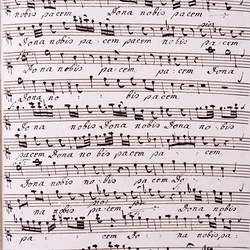 Dona nobis pacem
Dona nobis pacem pacem nobis pacem
Dona nobis pacem pacem Dona
nobis pacem
Dona nobis Dona nobis Dona nobis
pacem Dona nobis pacem pacem
Dona nobis pacem Do
na nobis pacem
pacem Dona nobis pacem